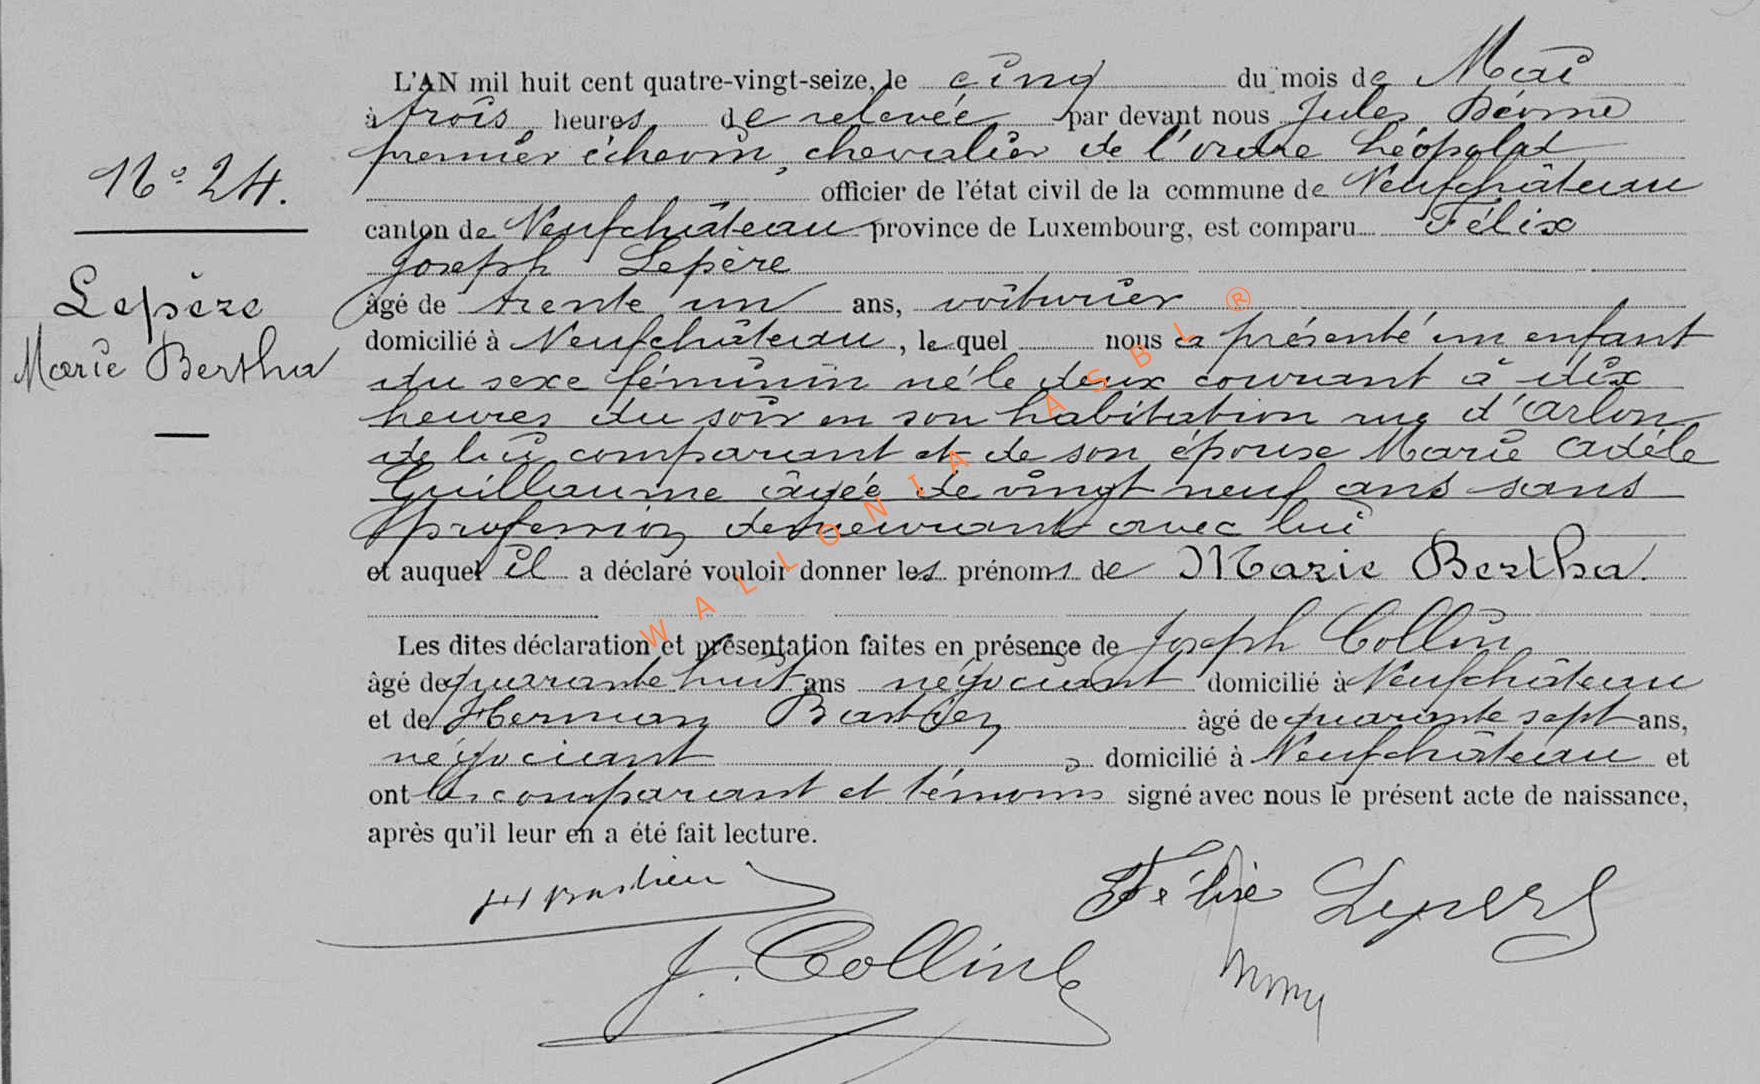 N° 24.
Lepère
Marie Bertha
L'AN mil huit cent quatre-vingt-seize, le cinq du mois de Mai
à trois heures de relevée par devant nous Jules
premier échevin, chevalier de l'ordre Léopold
officier de l'état civil de la commune de Neufchâteau
canton de Neufchâteau province de Luxembourg, est comparu Félix
Joseph Lepère
âgé de trente un ans, voiturier
domicilié à Neufchâteau, lequel nous a présenté un enfant
du sexe féminin né le deux courant à dix
heures du soir en son habitation rue d'Arlon
de lui comparant et de son épouse Marie Adèle
Guillaume âgée de vingt neuf ans sans
profession demeurant avec lui
et auquel il a déclaré vouloir donner les prénoms de Marie Bertha.
Les dites déclaration et présentation faites en présence de Joseph Collin
âgé de quarante huit ans négociant domicilié à Neufchâteau
et de Herman Bastien âgé de quarante sept ans,
négociant domicilié à Neufchâteau et
ont les comparant et témoins signé avec nous le présent acte de naissance,
après qu'il leur en a été fait lecture.
H Bastien
Félix Lepère
J. Collin
WALLONIA ASBL ®